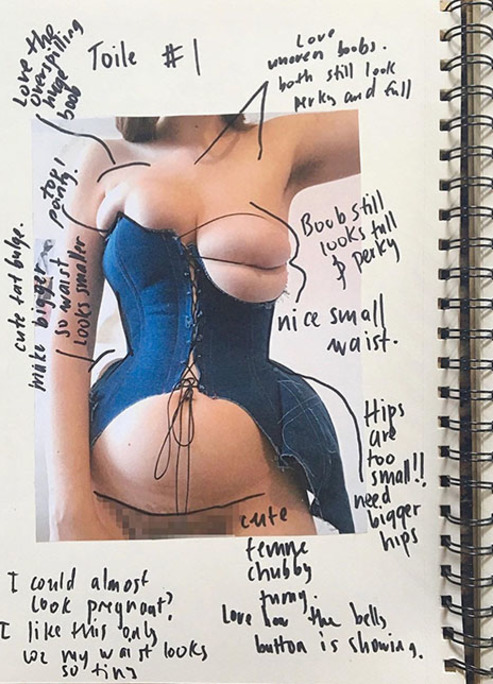 Toile #1
Love the
overspilling
huge
boob
Love
uneven boobs.
both still look
perky and full
too
pointy!
cute fat bulge.
make bigger
so waist
looks smaller
Boob still
looks full
& perky
nice small
waist.
Hips
are
too
small!!
need
bigger
hips
cute
femme
chubby
tummy.
Love how the belly
button is showing.
I could almost
look pregnant?
I like this only
coz my waist looks
so tiny